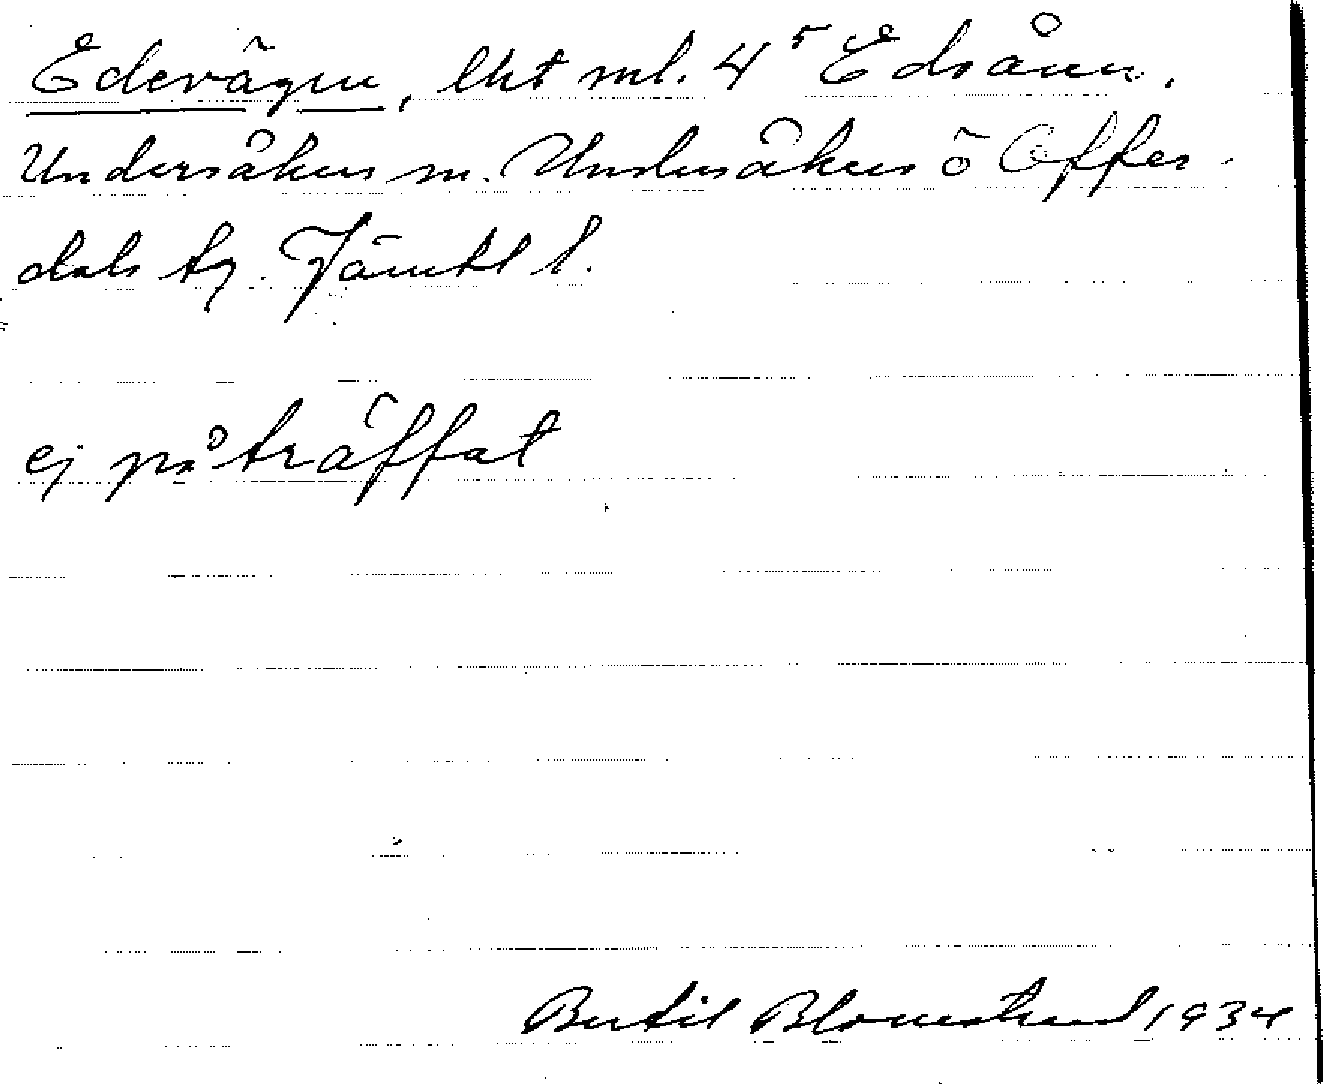 Edevägen, lht ml. 4⁵ Edsåsen.
Undersåkers sn. Undersåkers o Offer-
dals tg. Jämtl l.
ej påträffat
Bertil Blomstrand 1934